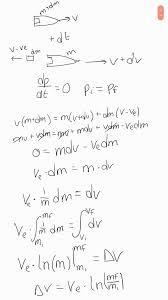 m+dm
→ v
+ dt
v-ve dm m
→ v + dv
dp/dt = 0 Pi = Pf
v(m+dm) = m(v+dv) + dm(v-ve)
mv + vdm = mv + mdv + vdm - vedm
0 = mdv - vedm
ve · dm = m · dv
ve · 1/m dm = dv
ve · ∫mi^mf 1/m dm = ∫vi^vf dv
ve · ln(m)|mi^mf = ΔV
ΔV = ve · ln(mf/mi)